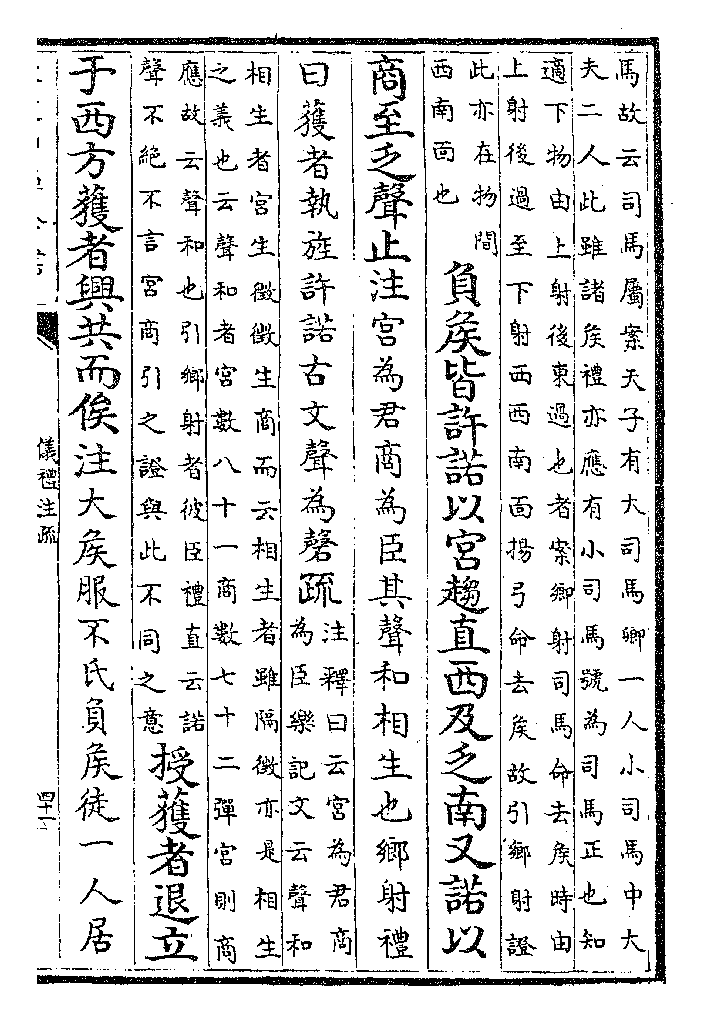 馬故云司馬屬案天子有大司馬卿一人小司馬中大
夫二人此雖諸侯禮亦應有小司馬號為司馬正也知
適下物由上射後東過也者案鄉射司馬命去侯時由
上射後過至下射西西南面揚弓命去侯故引鄉射證
此亦在物間
西南面也
負侯皆許諾以宮趨直西及乏南又諾以
商至乏聲止注宮為君商為臣其聲和相生也鄉射禮
曰獲者執旌許諾古文聲為磬疏
注釋曰云宮為君商
為臣樂記文云聲和
相生者宮生徵徵生商而云相生者雖隔徵亦是相生
之義也云聲和者宮數八十一商數七十二彈宮則商
應故云聲和也引鄉射者彼臣禮直云諾
聲不絕不言宮商引之證與此不同之意
授獲者退立
于西方獲者興共而俟注大侯服不氏負侯徒一人居
儀禮注疏